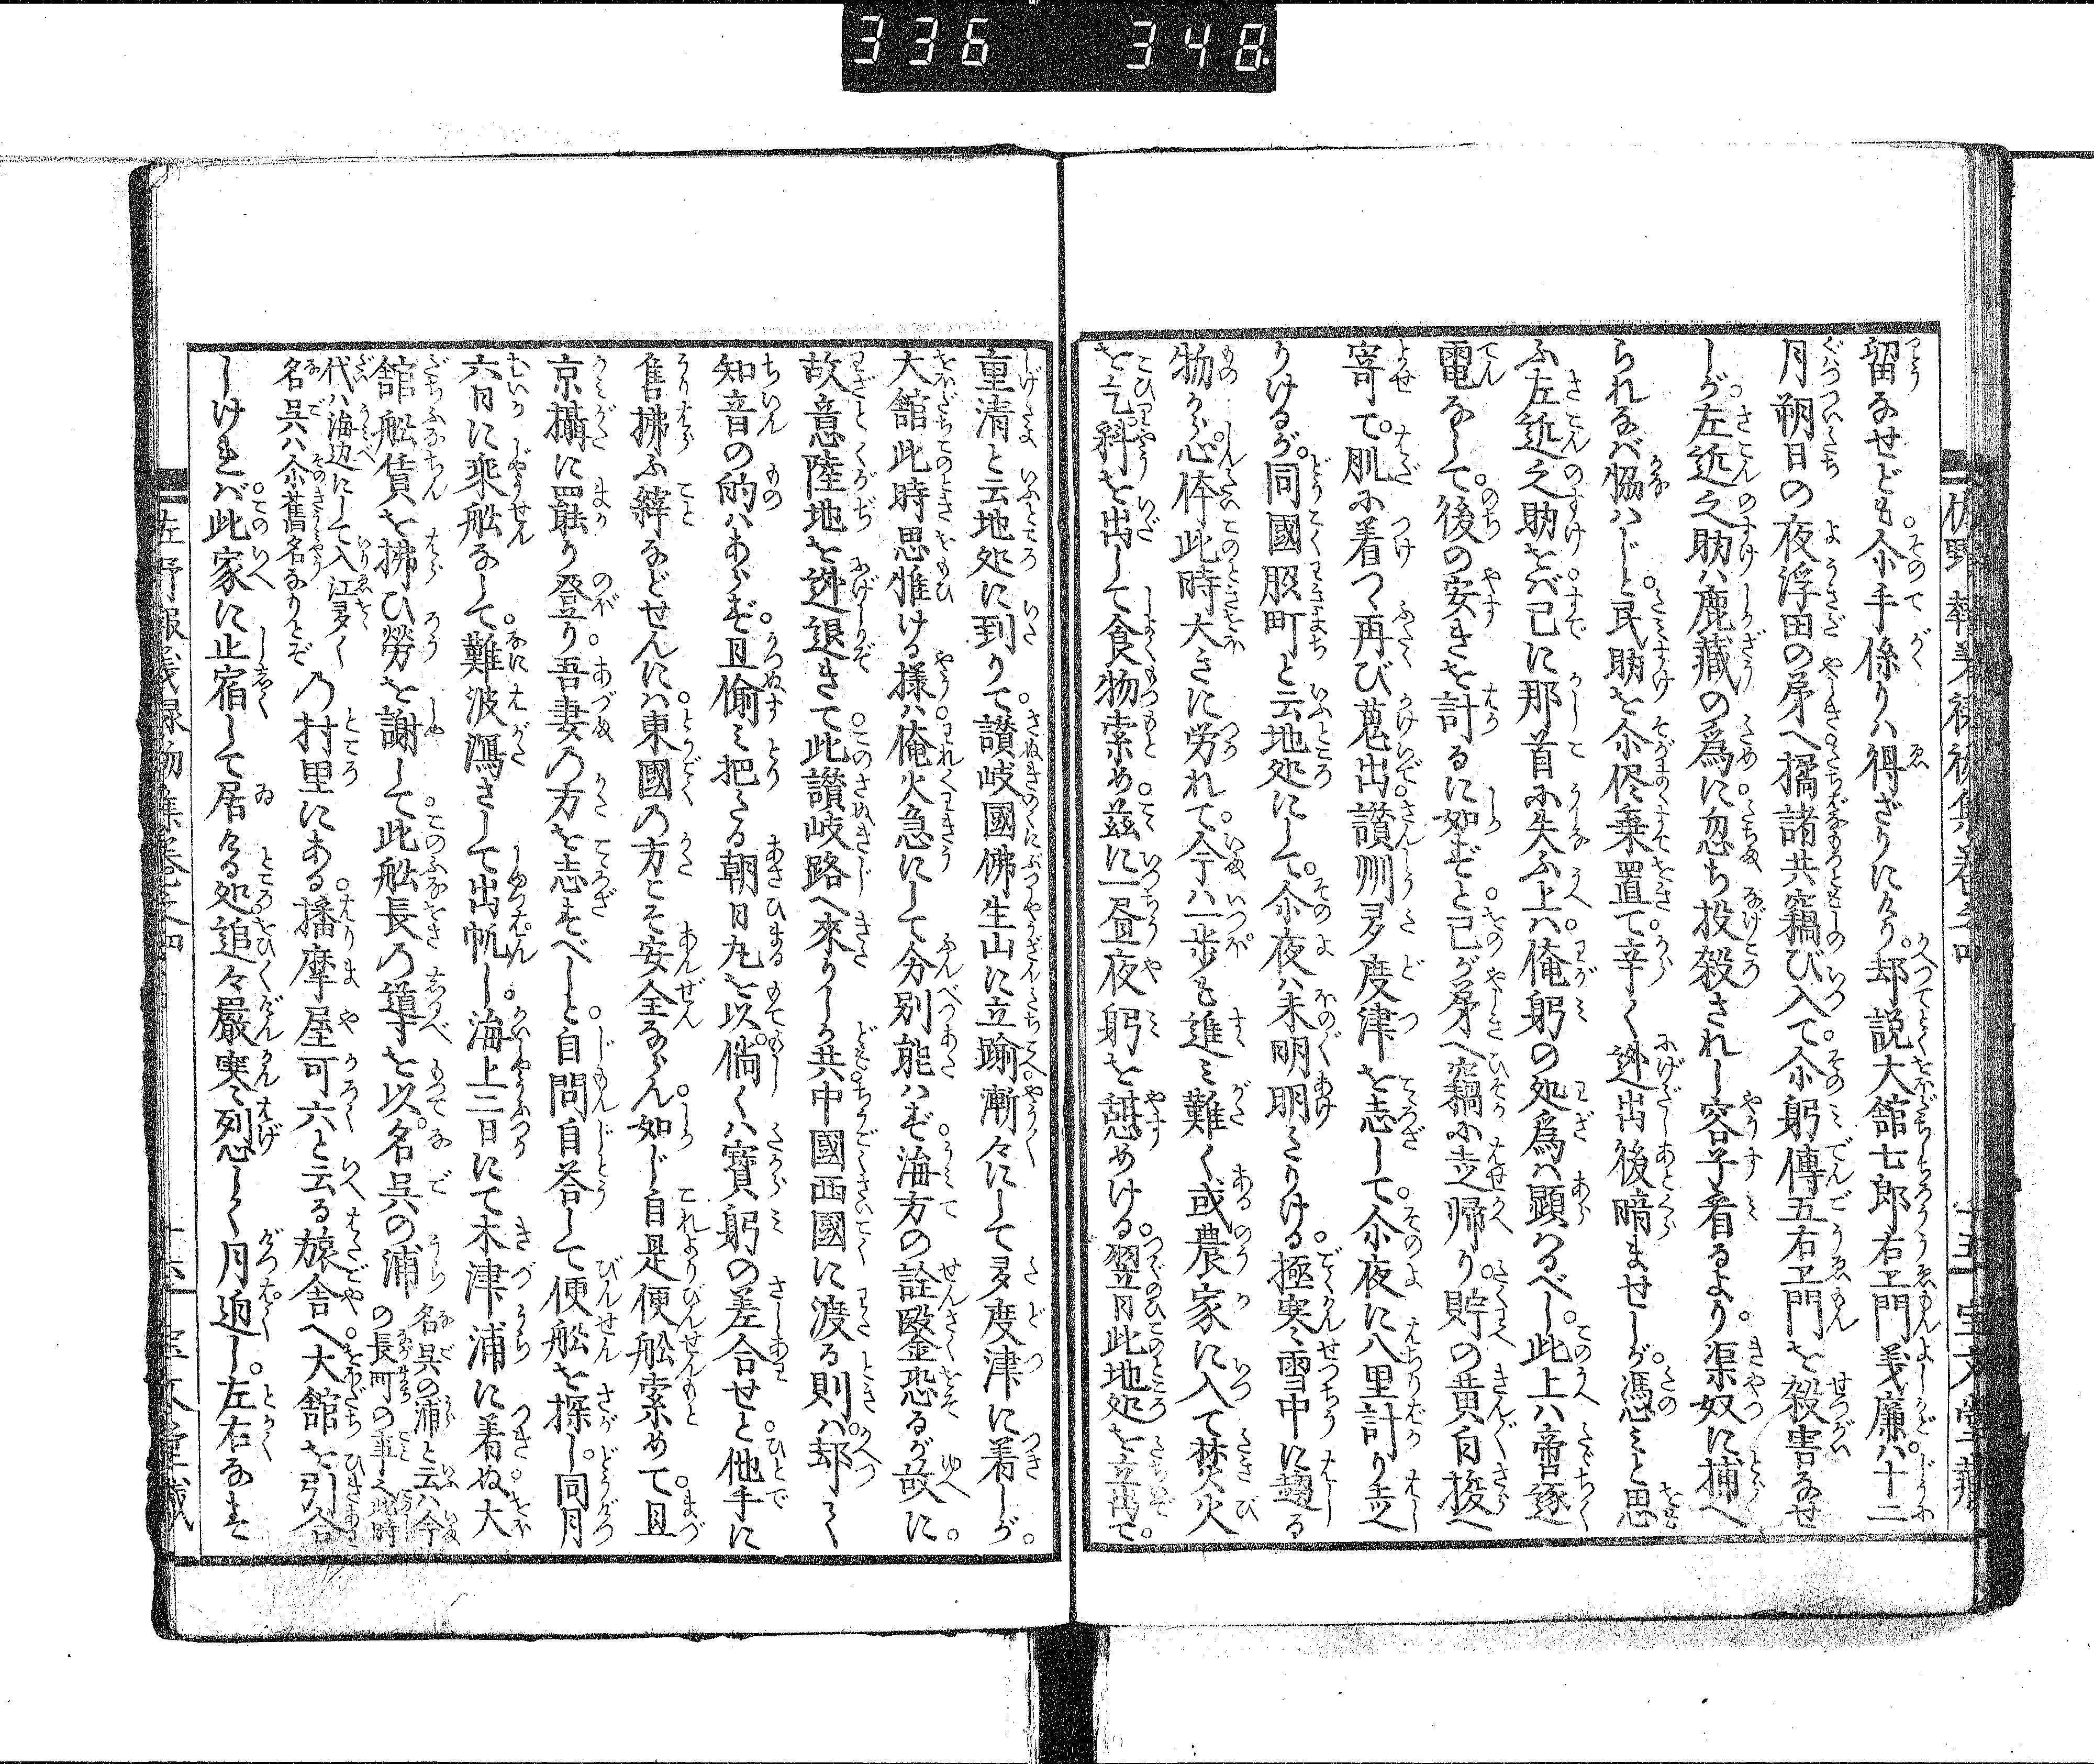 336 348
留なせども。尒手係りハ得ざりにけり。却説大舘七郎右エ門義廉ハ。十二
月朔日の夜浮田の苐へ橘諸共竊び入て。尒躬傳五右エ門を殺害なせ
しが。左近之助ハ鹿藏の爲に忽ち投殺されし容子看るより。渠奴に捕へ
られなバ協ハじと。民助を尒侭棄置て。辛く迯出後暗ませしが。憑ミと思
ふ左近之助をバ。已に那首に失ふ上ハ。俺躬の処爲ハ顕ハるべし。此上ハ啻逐
電なして。後の安きを計るに如ずと。己が苐へ竊に走帰り。貯の黄白掻
寄て。肌に着つ再び蒐出。讃州多度津を志して。尒夜に八里計り走
りけるが。同國服町と云地処にして。尒夜ハ未明明たりける。極寒雪中に趨る
物から。心体此時大きに労れて。今ハ一歩も進ミ難く。或農家に入て焚火
を乞。料を出して食物索め。茲に一昼夜躬を憩めける。翌日此地処を立出て。
重清と云地処に到りて。讃岐國佛生山に立踰。漸々にして多度津に着しが。
大舘此時思惟ける様ハ。俺火急にして分別能ハず。海方の詮鑿恐るが故に。
故意陸地を迯退きて。此讃岐路へ來りしか共。中國西國に渡る則ハ。却て
知音の的ハあらず。且偸ミ把たる朝日丸を以。倘くハ寳躬の差合せと。他手に
售拂ふ縡などせんにハ。東國の方こそ安全ならん。如じ自是便舩索めて。且
京攝に罷り登り。吾妻の方を志すべしと。自問自荅して便舩を探し。同月
六日に乘舩なして。難波潟さして出帆し。海上二日にて木津浦に着ぬ。大
舘舩賃を拂ひ勞を謝して。此舩長の導を以。名呉の浦 名呉の浦と云ハ今の長町の事也此時
代ハ海辺にして入江多く名呉ハ尒舊名なりとぞ の村里にある。播摩屋可六と云る旅舎へ。大舘を引合
しけれバ。此家に止宿して居たる処。追々嚴寒烈しく月迫し。左右なす
宝文堂藏